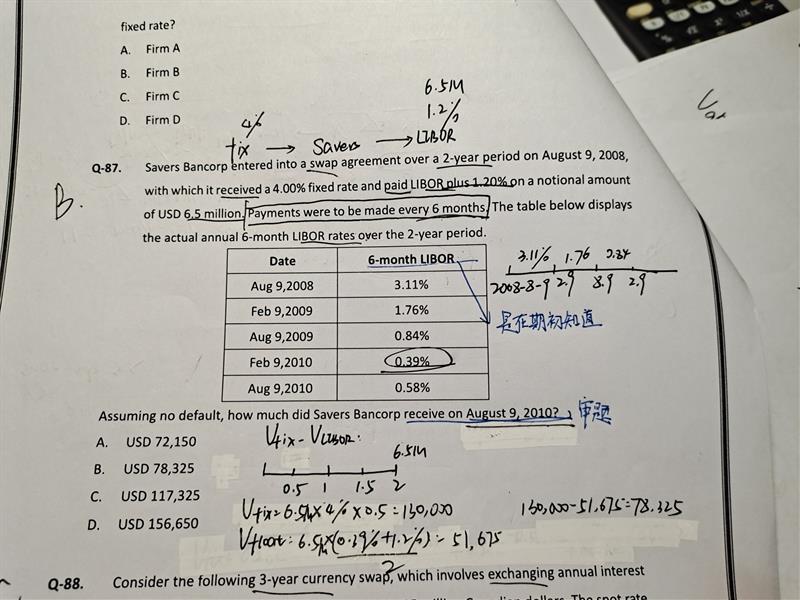 fixed rate?
A. Firm A
B. Firm B
C. Firm C
D. Firm D
6.5M
4% 1.2%
fix → Savers → LIBOR
Q-87. Savers Bancorp entered into a swap agreement over a 2-year period on August 9, 2008,
with which it received a 4.00% fixed rate and paid LIBOR plus 1.20% on a notional amount
B.
of USD 6.5 million. Payments were to be made every 6 months. The table below displays
the actual annual 6-month LIBOR rates over the 2-year period.
Date 6-month LIBOR
Aug 9,2008 3.11%
Feb 9,2009 1.76%
Aug 9,2009 0.84%
Feb 9,2010 0.39%
Aug 9,2010 0.58%
3.11% 1.76 0.84
2008-8-9 2.9 8.9 2.9
是在期初知道
Assuming no default, how much did Savers Bancorp receive on August 9, 2010?
审题
A. USD 72,150
B. USD 78,325
C. USD 117,325
D. USD 156,650
Vfix - VLIBOR:
6.5M
0.5 1 1.5 2
Vfix = 6.5M × 4% × 0.5 = 130,000
130,000-51,675=78.325
Vfloat = 6.5M × (0.39%+1.2%) = 51,675
2
Q-88. Consider the following 3-year currency swap, which involves exchanging annual interest